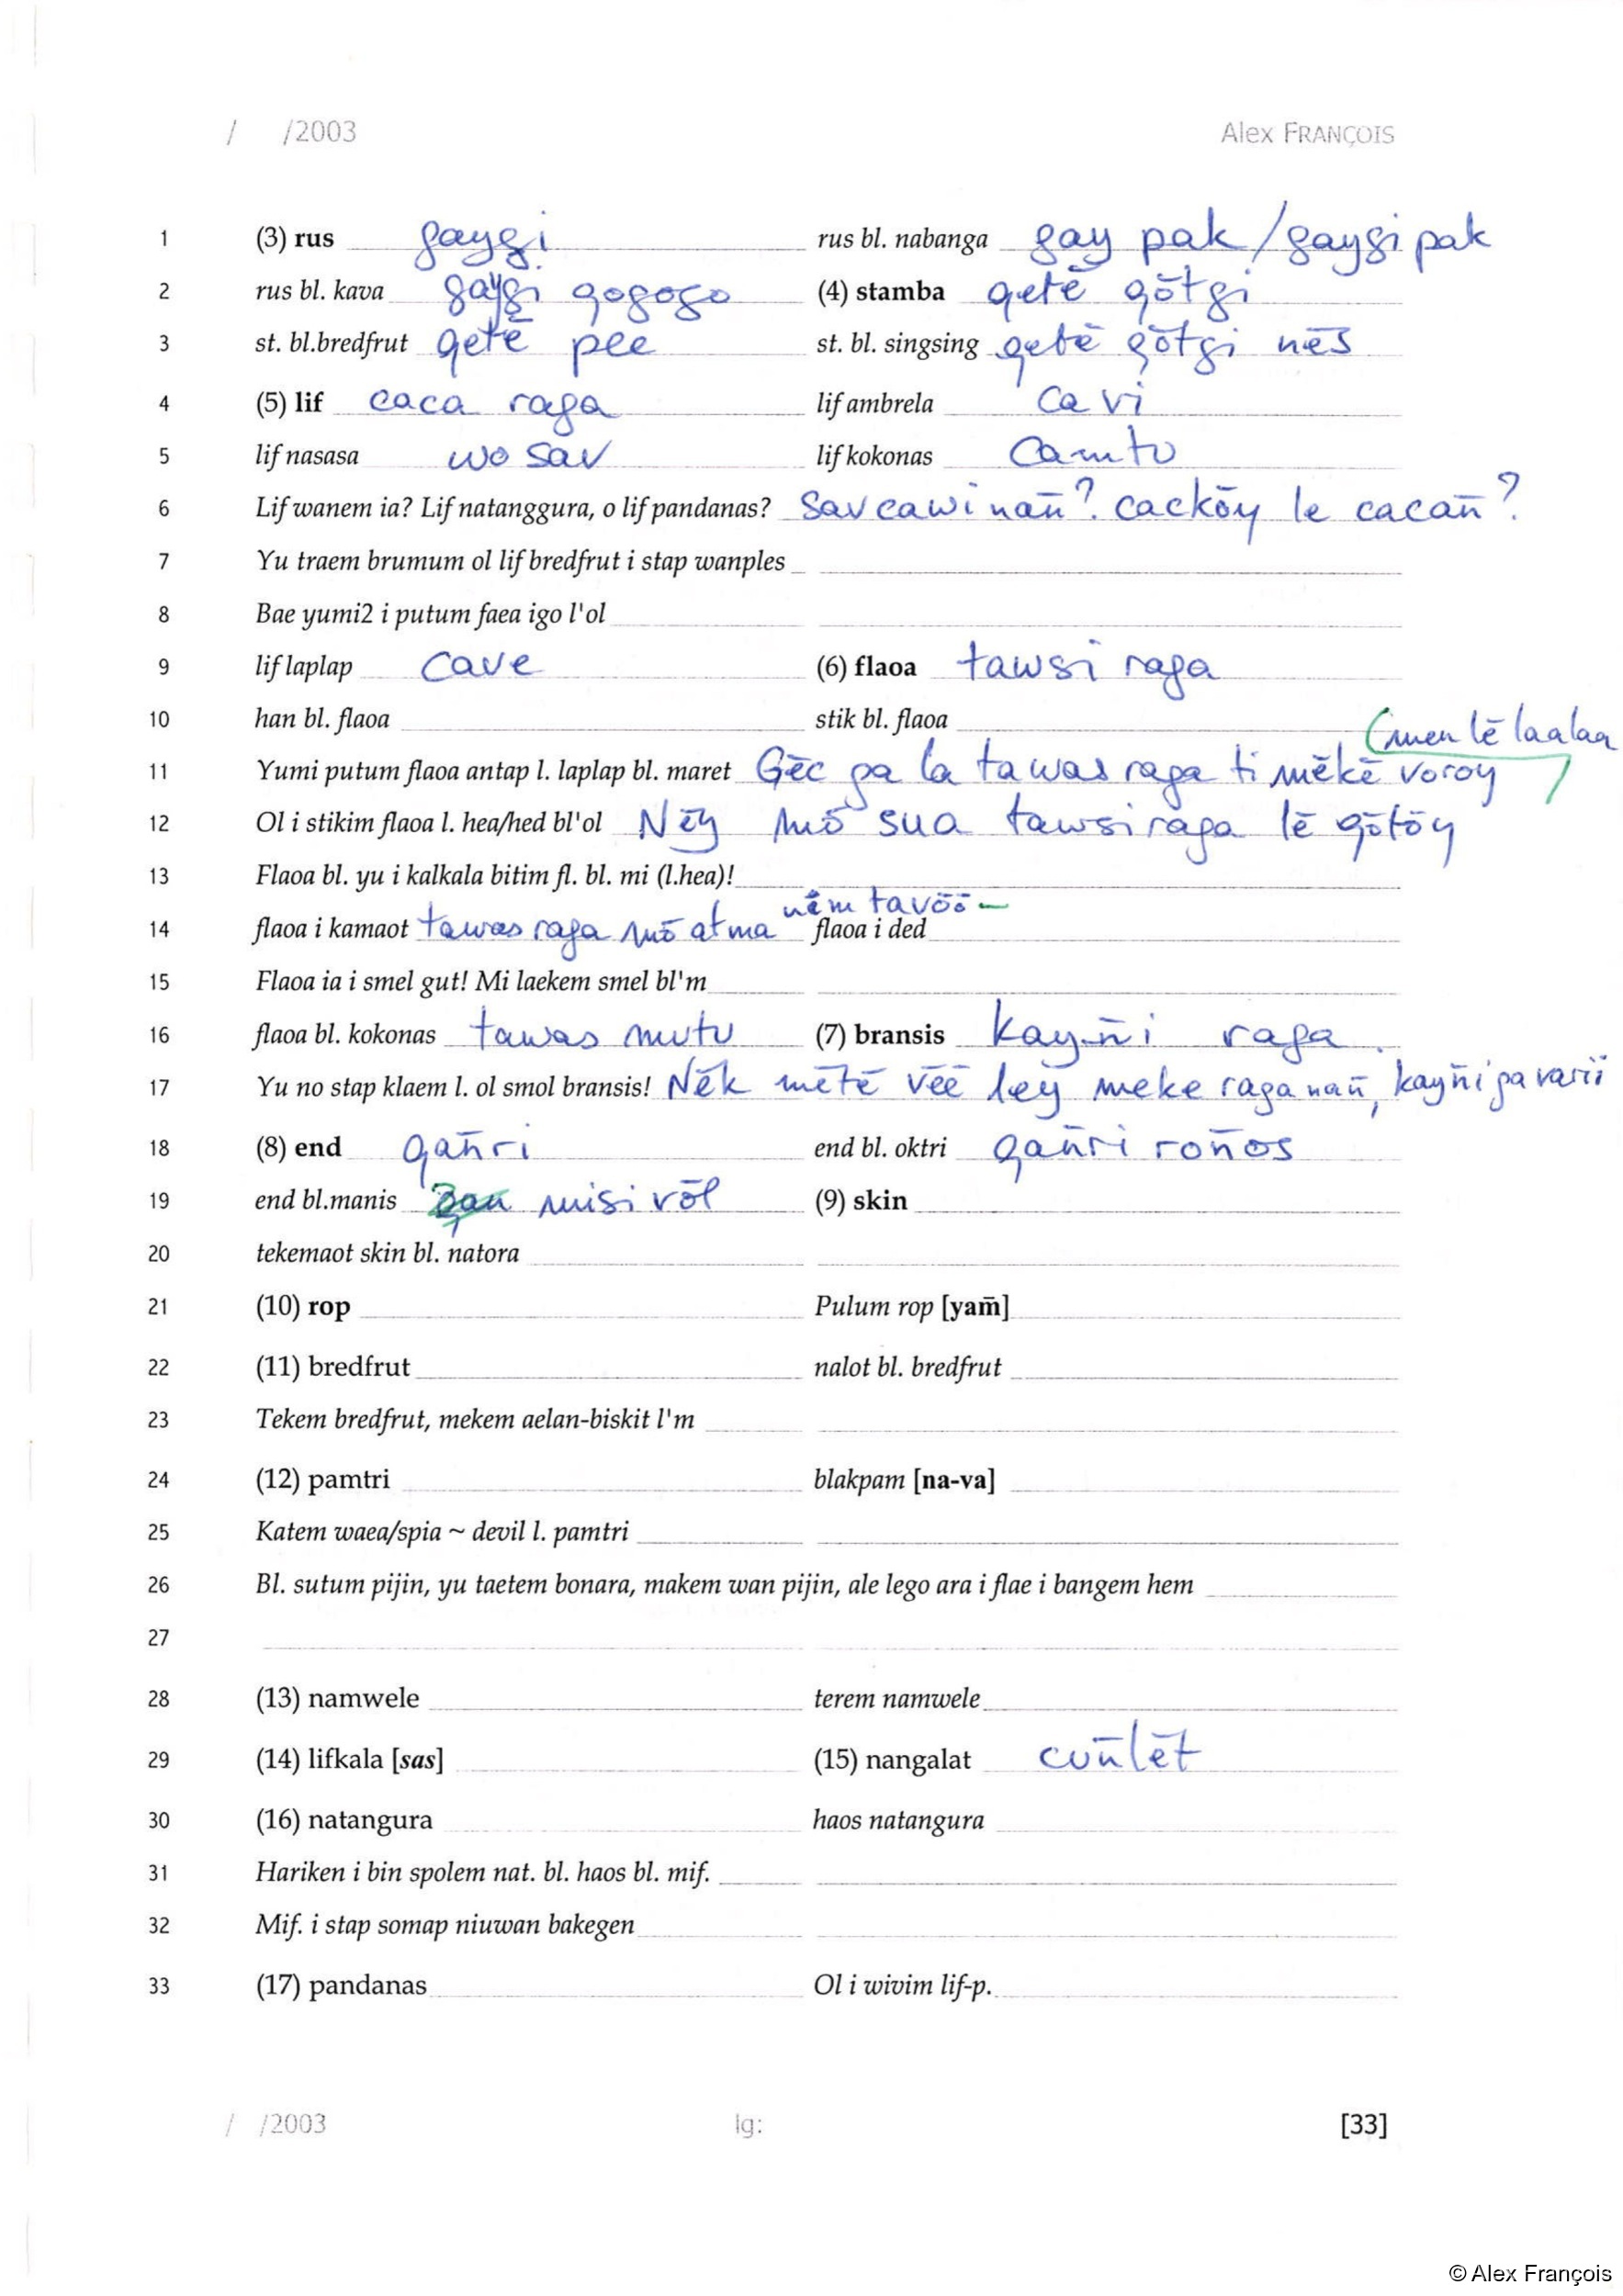 / /2003 Alex FRANÇOIS
1 (3) rus gaygi rus bl. nabanga gay pak / gaygi pak
2 rus bl. kava gaygi gogogo (4) stamba qetē gōtgi
3 st. bl.bredfrut qetē pee st. bl. singsing qetē gōtgi nēs
4 (5) lif caca raga lif ambrela ca vi
5 lif nasasa wo sav lif kokonas camtu
6 Lif wanem ia? Lif natanggura, o lif pandanas? Sav cawi nan̄? cackōy le cacan̄?
7 Yu traem brumum ol lif bredfrut i stap wanples
8 Bae yumi2 i putum faea igo l'ol
9 lif laplap cave (6) flaoa tawsi raga
10 han bl. flaoa stik bl. flaoa
(men lē laalaa
11 Yumi putum flaoa antap l. laplap bl. maret Gēc pa la tawas raga ti mēkē voroy
12 Ol i stikim flaoa l. hea/hed bl'ol Nēy mō sua tawsi raga lē qōtōy
13 Flaoa bl. yu i kalkala bitim fl. bl. mi (l.hea)!
nēm tavōō
14 flaoa i kamaot tawas raga mō at ma flaoa i ded
15 Flaoa ia i smel gut! Mi laekem smel bl'm
16 flaoa bl. kokonas tawas mutu (7) bransis kayn̄i raga
17 Yu no stap klaem l. ol smol bransis! Nēk mētē vēē ley meke raga nan̄, kayn̄i pa varii
18 (8) end qan̄ri end bl. oktri qan̄ri ron̄os
19 end bl.manis misi vōl (9) skin
20 tekemaot skin bl. natora
21 (10) rop Pulum rop [yam̄]
22 (11) bredfrut nalot bl. bredfrut
23 Tekem bredfrut, mekem aelan-biskit l'm
24 (12) pamtri blakpam [na-va]
25 Katem waea/spia ~ devil l. pamtri
26 Bl. sutum pijin, yu taetem bonara, makem wan pijin, ale lego ara i flae i bangem hem
27
28 (13) namwele terem namwele
29 (14) lifkala [sas] (15) nangalat cun̄lēt
30 (16) natangura haos natangura
31 Hariken i bin spolem nat. bl. haos bl. mif.
32 Mif. i stap somap niuwan bakegen
33 (17) pandanas Ol i wivim lif-p.
/ /2003 lg: [33]
© Alex François